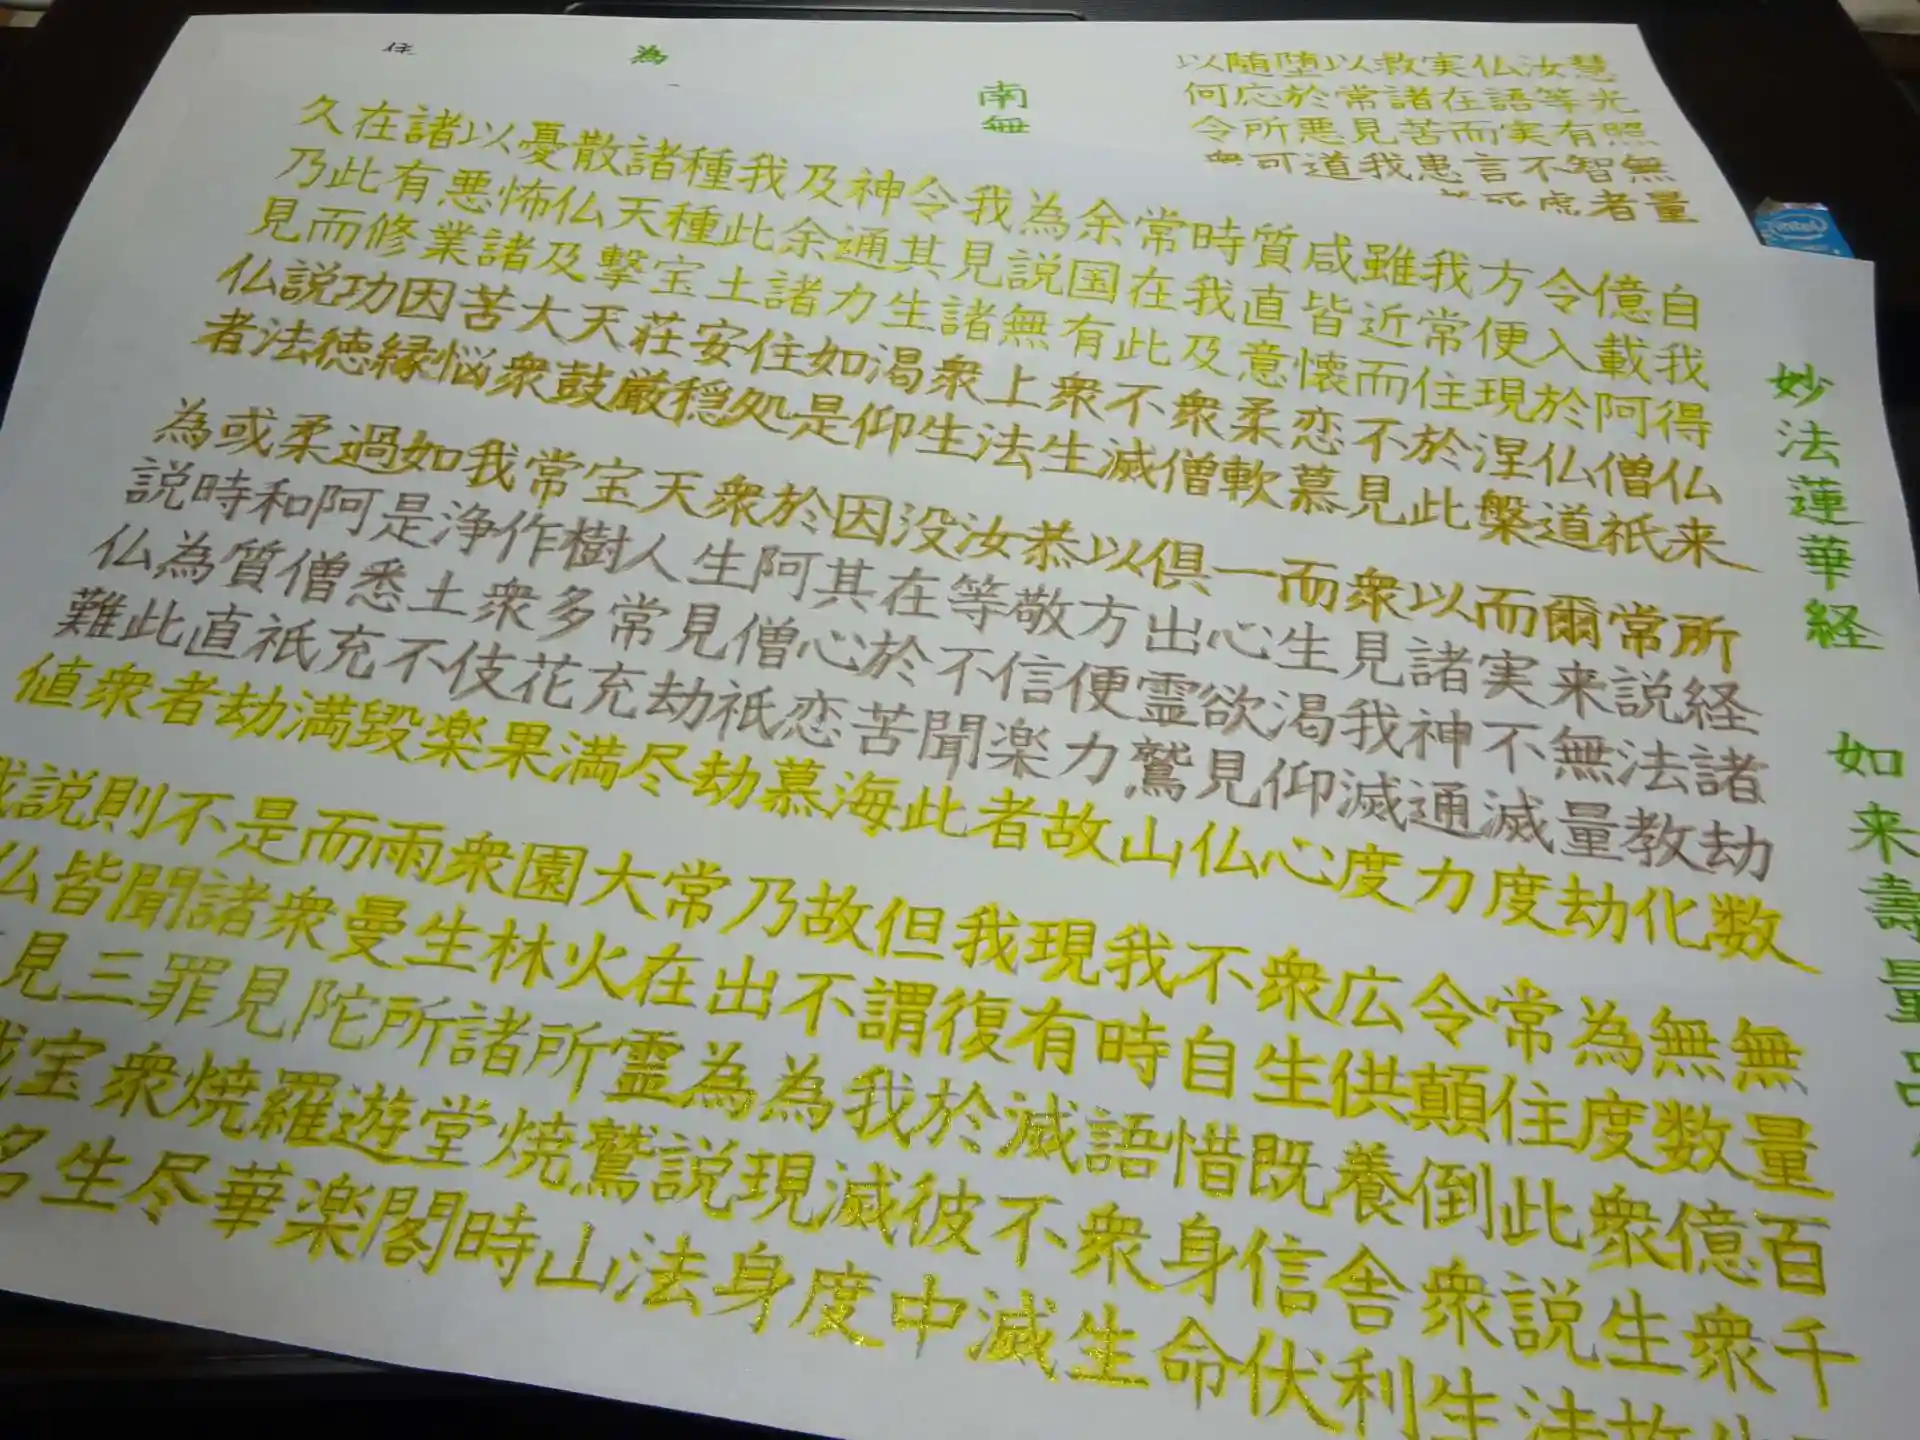 妙法蓮華経 如来壽量品
自我得仏来 所経諸劫数 無量百千
億載阿僧祇 常説法教化 無数億衆生
令入於仏道 爾来無量劫 為度衆生故
方便現涅槃 而実不滅度 常住此説法
我常住於此 以諸神通力 令顛倒衆生
雖近而不見 衆見我滅度 広供養舎利
咸皆懐恋慕 而生渇仰心 衆生既信伏
質直意柔軟 一心欲見仏 不自惜身命
時我及衆僧 俱出霊鷲山 我時語衆生
常在此不滅 以方便力故 現有滅不滅
余国有衆生 恭敬信楽者 我復於彼中
為説無上法 汝等不聞此 但謂我滅度
我見諸衆生 没在於苦海 故不為現身
令其生渇仰 因其心恋慕 乃出為説法
神通力如是 於阿僧祇劫 常在霊鷲山
及余諸住処 衆生見劫尽 大火所焼時
我此土安穏 天人常充満 園林諸堂閣
種種宝荘厳 宝樹多花果 衆生所遊楽
諸天撃天鼓 常作衆伎楽 雨曼陀羅華
散仏及大衆 我浄土不毀 而衆見焼尽
憂怖諸苦悩 如是悉充満 是諸罪衆生
以悪業因縁 過阿僧祇劫 不聞三宝名
諸有修功徳 柔和質直者 則皆見我
在此而説法 或時為此衆 説仏
久乃見仏者 為説仏難値 我
慧光照無量
汝等有智者
仏語実不虚
実在而言死
救諸苦患
以常見我
堕於悪道
随応所可
以何令衆
南無
為
住
intel